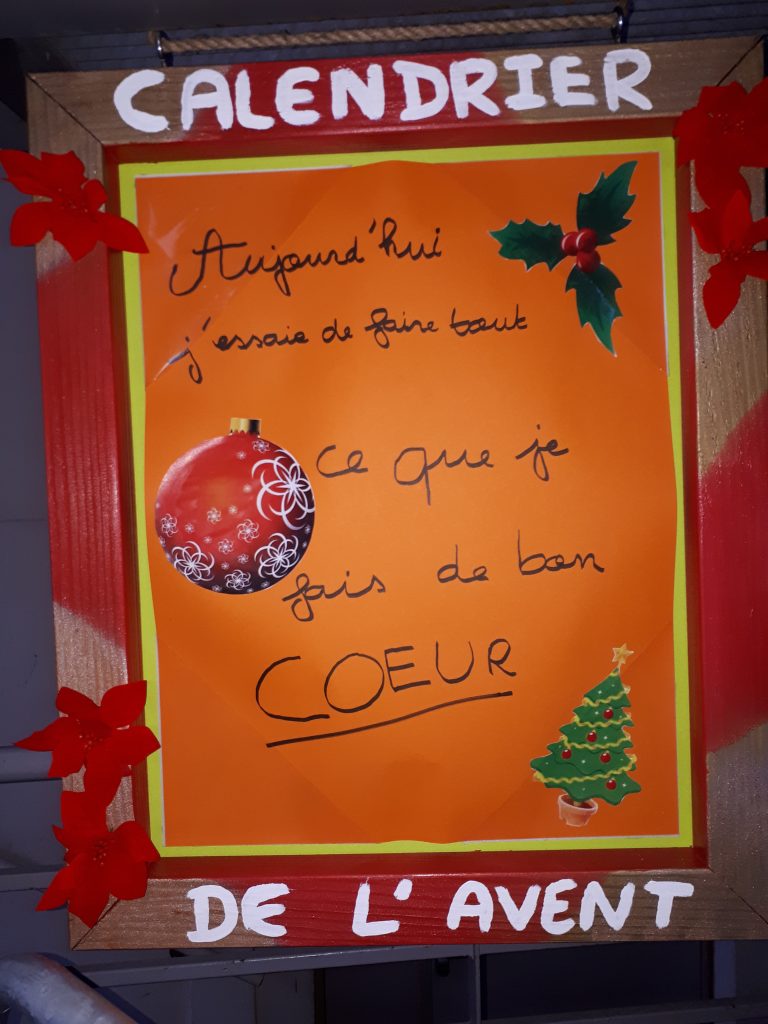 CALENDRIER
Aujourd'hui
j'essaie de faire tout
ce que je
fais de bon
COEUR
DE L'AVENT